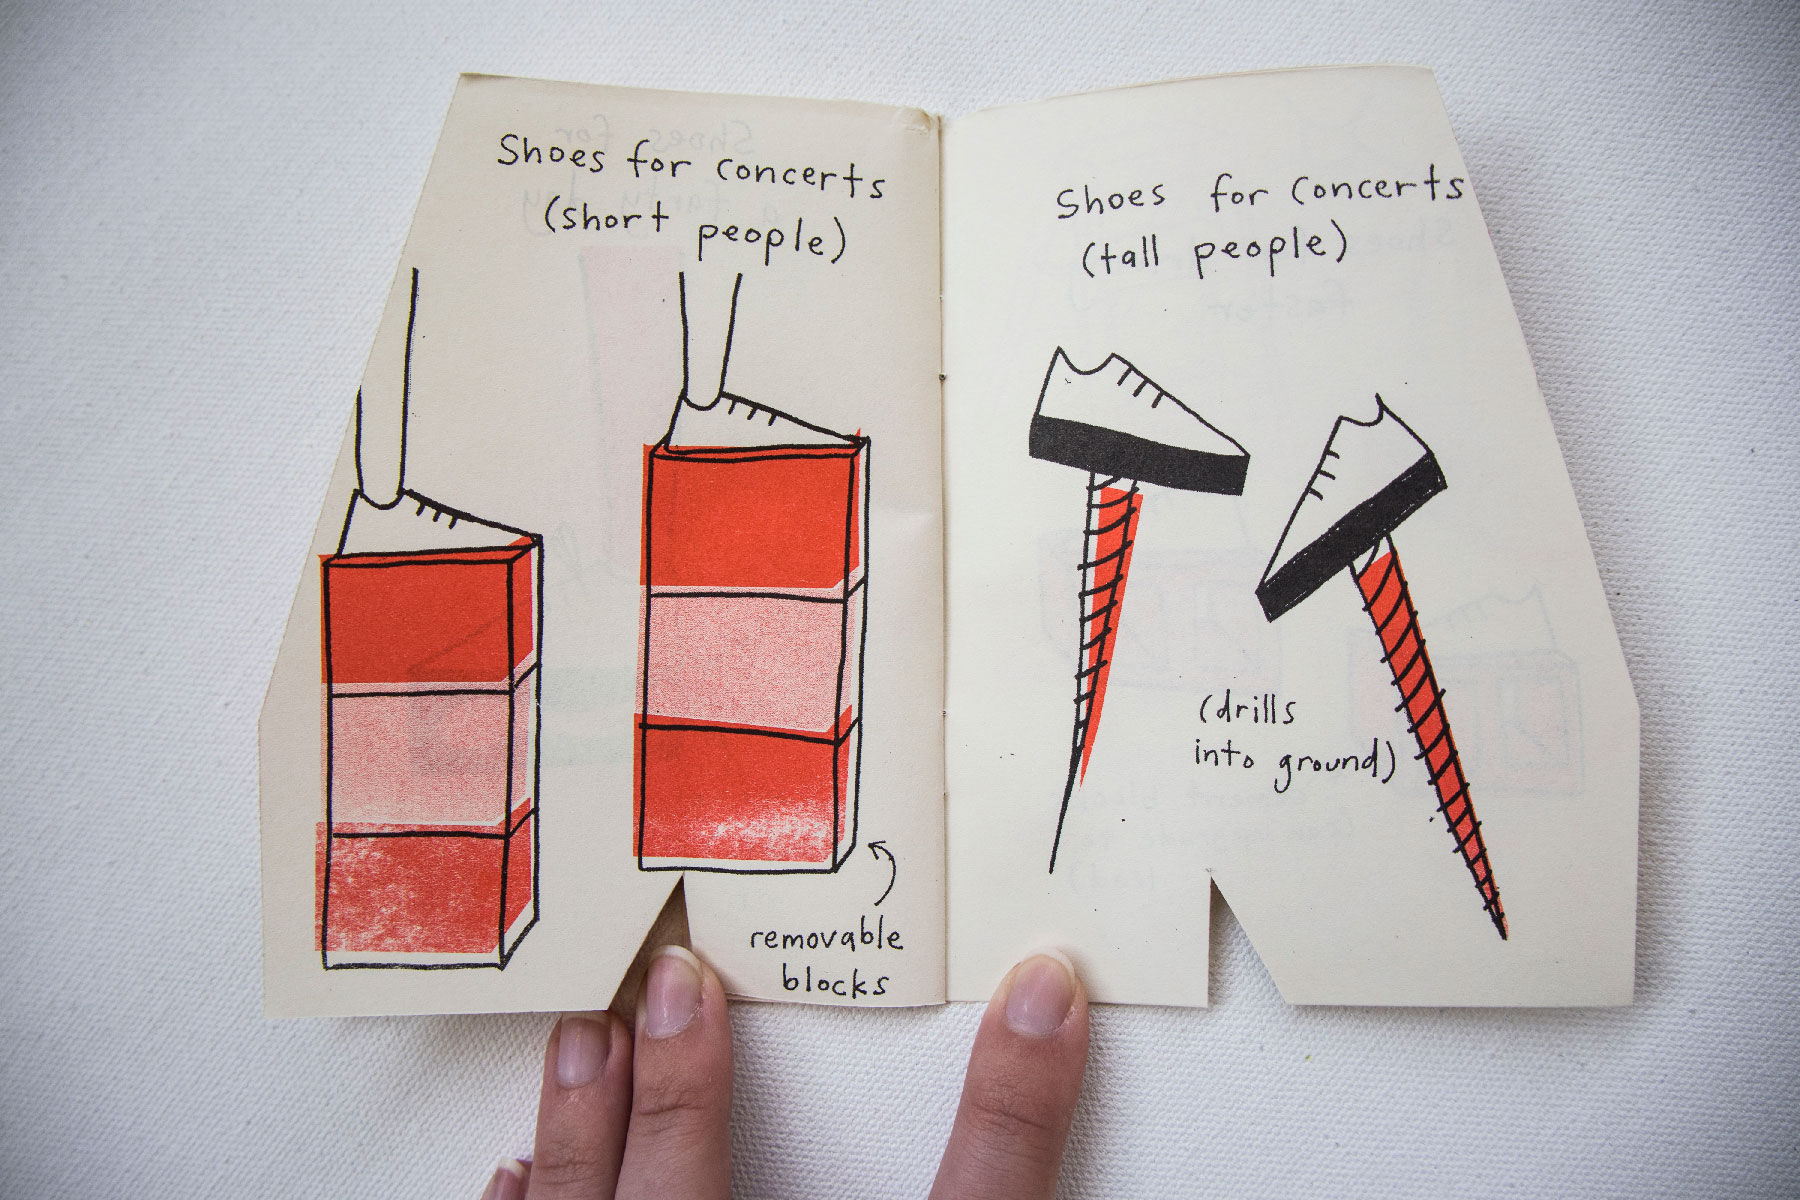 Shoes for concerts
(short people)
removable
blocks
Shoes for concerts
(tall people)
(drills
into ground)